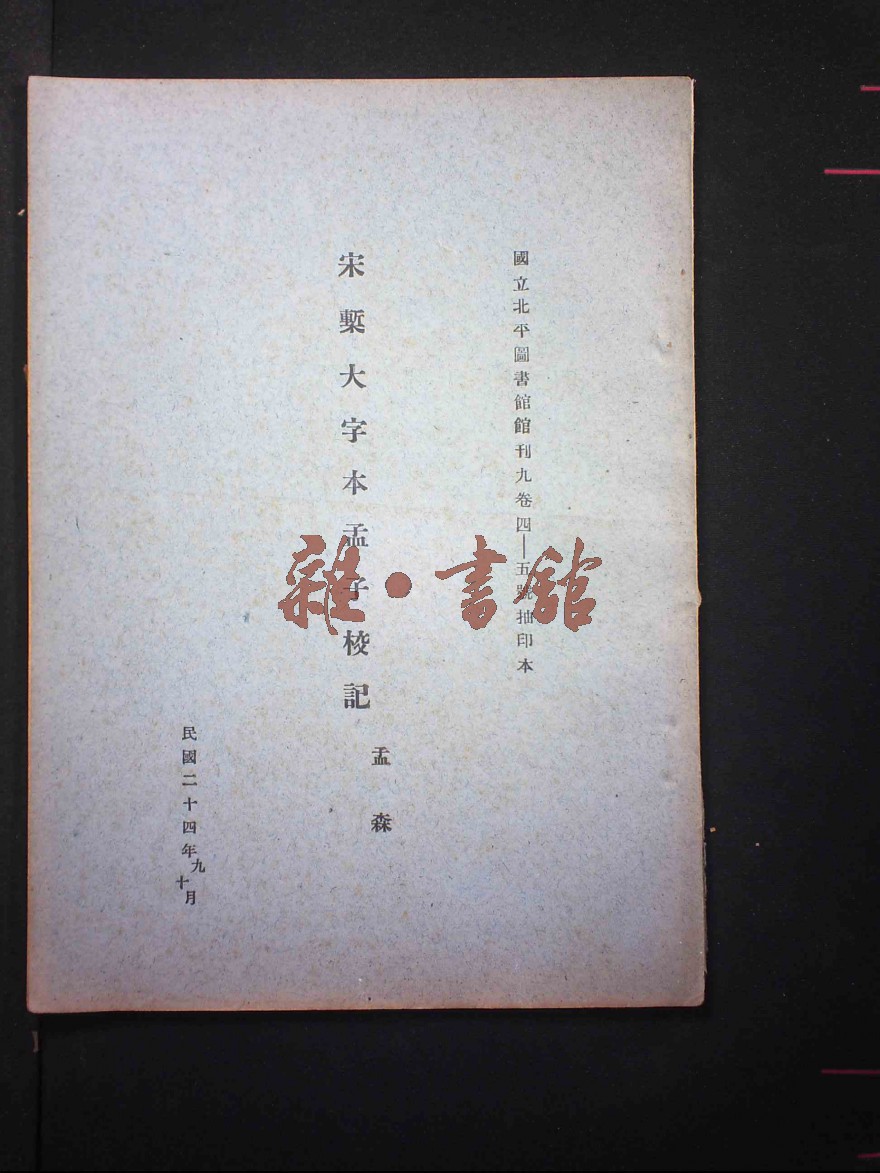 國立北平圖書館館刊九卷四—五號抽印本
宋槧大字本孟子校記
孟森
民國二十四年九十月
雜·書館